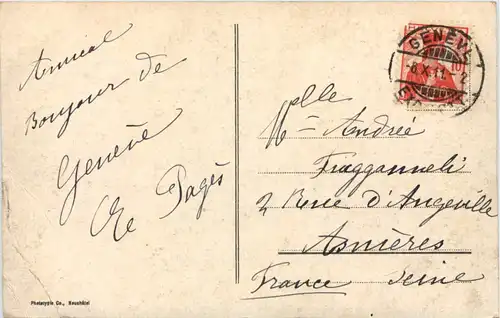 Amical
Bonjour de
Genève
Pagès
Mlle Andrée
2 Rue d'Angeville
Asnières
France Seine
GENÈVE
-8.X.11.-2
10
Phototypie Co., Neuchâtel